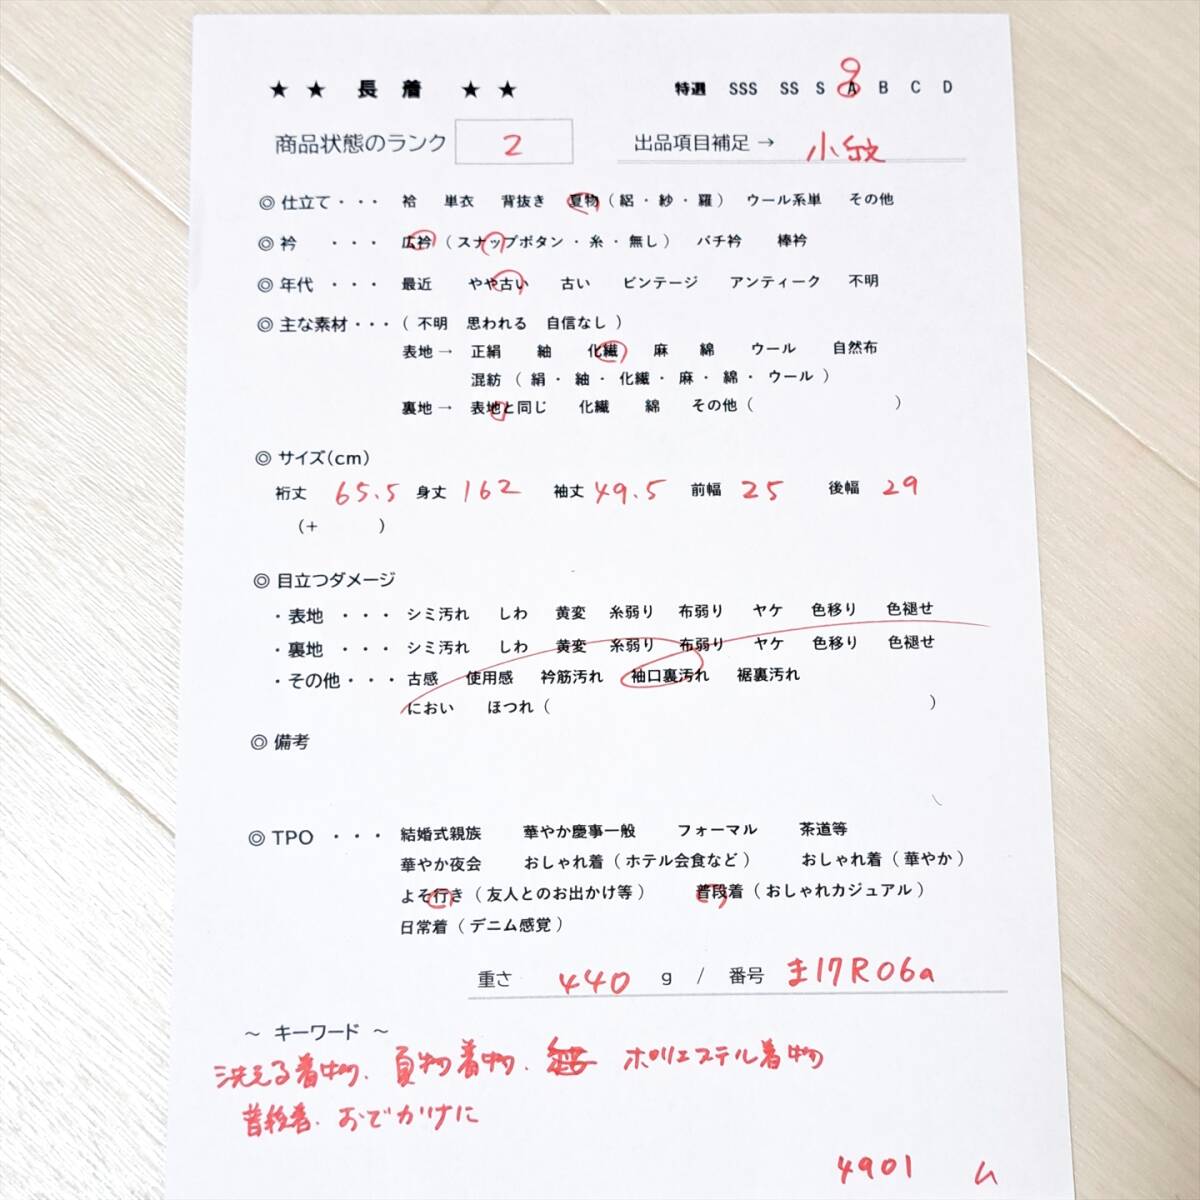 ★ ★ 長 着 ★ ★ 特選 SSS SS S A B C D
商品状態のランク 2 出品項目補足 → 小紋
◎ 仕立て・・・ 袷 単衣 背抜き 夏物（ 絽 ・ 紗 ・ 羅 ） ウール系単 その他
◎ 衿 ・・・ 広衿 （ スナップボタン ・ 糸 ・ 無し ） バチ衿 棒衿
◎ 年代 ・・・ 最近 やや古い 古い ビンテージ アンティーク 不明
◎ 主な素材・・・（ 不明 思われる 自信なし ）
表地 → 正絹 紬 化繊 麻 綿 ウール 自然布
混紡 （ 絹 ・ 紬 ・ 化繊 ・ 麻 ・ 綿 ・ ウール ）
裏地 → 表地と同じ 化繊 綿 その他（ ）
◎ サイズ(cm)
裄丈 65.5 身丈 162 袖丈 49.5 前幅 25 後幅 29
（＋ ）
◎ 目立つダメージ
・表地 ・・・ シミ汚れ しわ 黄変 糸弱り 布弱り ヤケ 色移り 色褪せ
・裏地 ・・・ シミ汚れ しわ 黄変 糸弱り 布弱り ヤケ 色移り 色褪せ
・その他・・・ 古感 使用感 衿筋汚れ 袖口裏汚れ 裾裏汚れ
におい ほつれ（ ）
◎ 備考
◎ TPO ・・・ 結婚式親族 華やか慶事一般 フォーマル 茶道等
華やか夜会 おしゃれ着（ ホテル会食など ） おしゃれ着（ 華やか ）
よそ行き （ 友人とのお出かけ等 ） 普段着（ おしゃれカジュアル ）
日常着（ デニム感覚 ）
重さ 440 g / 番号 ま17R06a
～ キーワード ～
洗える着物、夏物着物、 ポリエステル着物
普段着、おでかけに
4901 ム